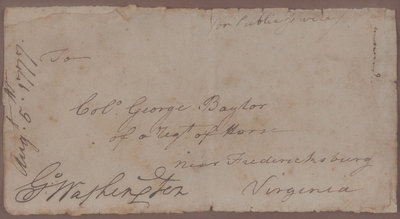 on Public Service
To
Colº. George Baylor
of a Regt of Horse
near Fredericksburg
Virginia
Go Washington
Augt 5. 1777.